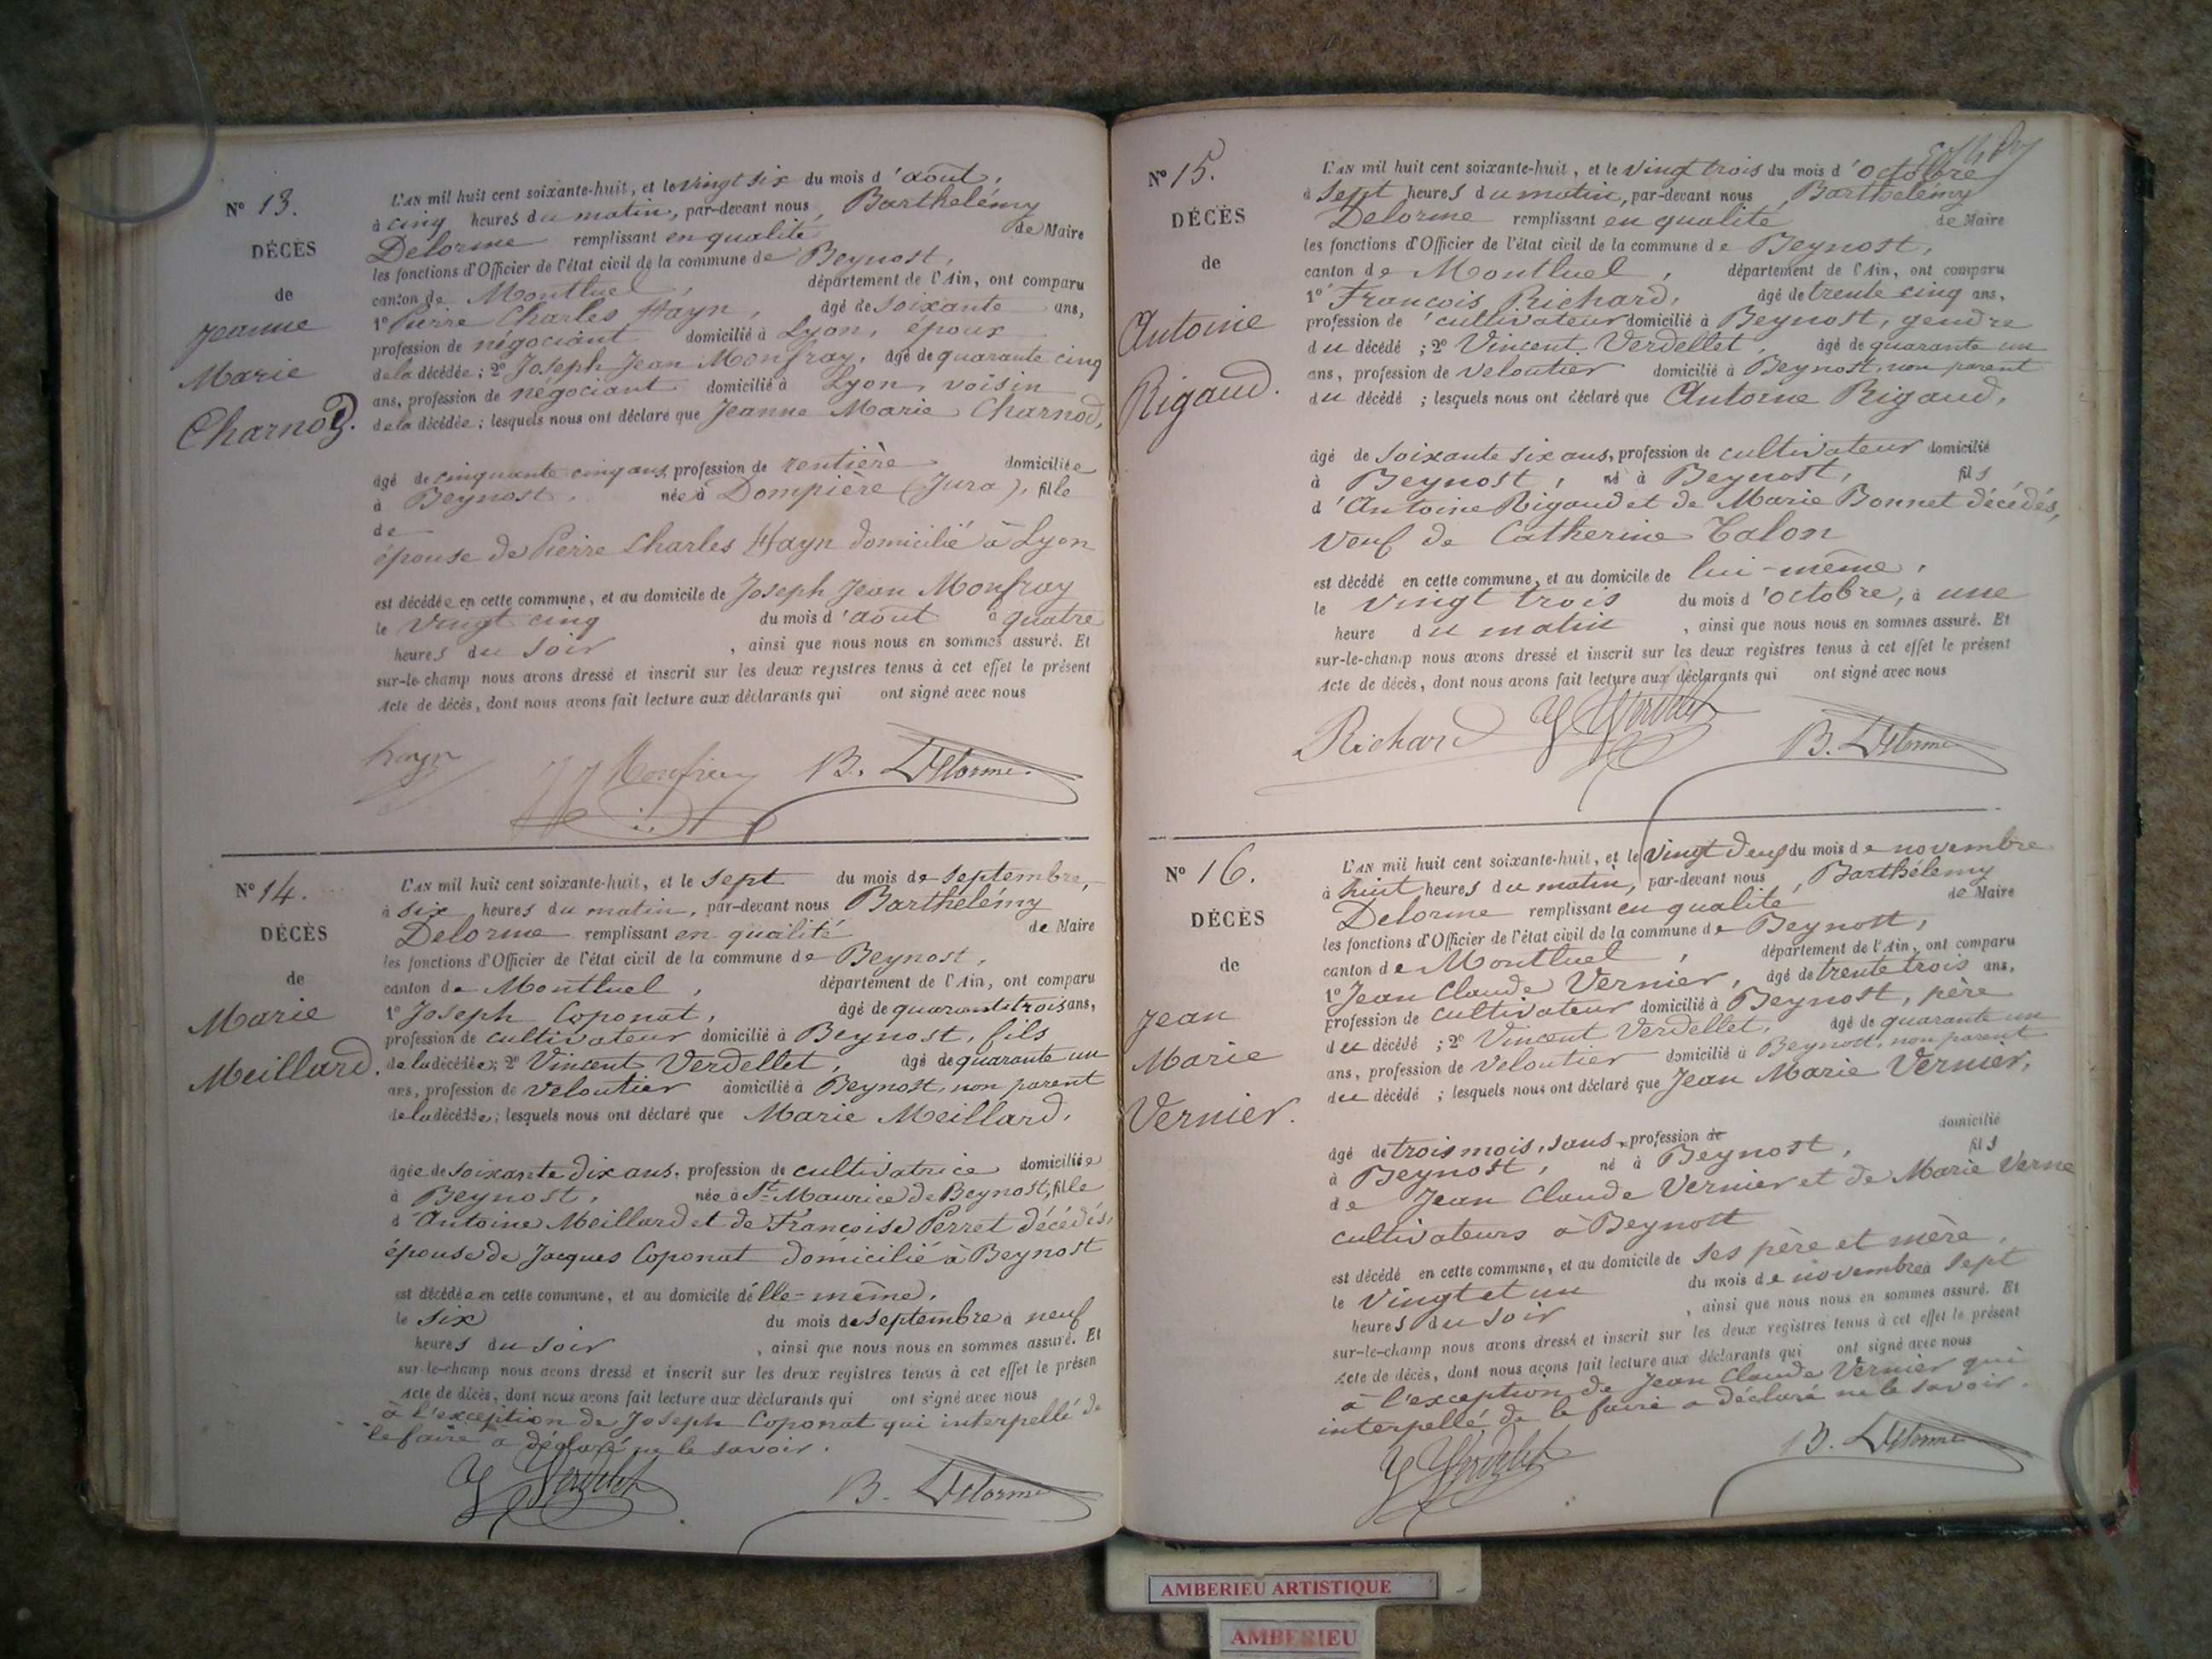 N° 13.
DÉCÈS
de
Jeanne
Marie
Charnod.
L'AN mil huit cent soixante-huit, et le vingt six du mois d'août,
à cinq heures du matin, par-devant nous, Barthélémy
Delorme remplissant en qualité de Maire
les fonctions d'Officier de l'état civil de la commune de Beynost,
canton de Montluel, département de l'Ain, ont comparu
1° Pierre Charles Hayn, âgé de soixante ans,
profession de négociant domicilié à Lyon, époux
de la décédée; 2° Joseph Jean Monfray, âgé de quarante cinq
ans, profession de négociant domicilié à Lyon, voisin
de la décédée; lesquels nous ont déclaré que Jeanne Marie Charnod,
âgé de cinquante cinq ans, profession de rentière domiciliée
à Beynost, née à Dompière (Jura), fille
de
épouse de Pierre Charles Hayn domicilié à Lyon
est décédée en cette commune, et au domicile de Joseph Jean Monfray
le vingt cinq du mois d'août à quatre
heures du soir, ainsi que nous nous en sommes assuré. Et
sur-le-champ nous avons dressé et inscrit sur les deux registres tenus à cet effet le présent
Acte de décès, dont nous avons fait lecture aux déclarants qui ont signé avec nous
hayn JJ Monfray B. Delorme
N° 14.
DÉCÈS
de
Marie
Meillard.
L'AN mil huit cent soixante-huit, et le sept du mois de septembre,
à six heures du matin, par-devant nous Barthélémy
Delorme remplissant en qualité de Maire
les fonctions d'Officier de l'état civil de la commune de Beynost,
canton de Montluel, département de l'Ain, ont comparu
1° Joseph Coponat, âgé de quarante trois ans,
profession de cultivateur domicilié à Beynost, fils
de la décédée; 2° Vincent Verdellet, âgé de quarante un
ans, profession de veloutier domicilié à Beynost, non parent
de la décédée; lesquels nous ont déclaré que Marie Meillard,
âgée de soixante dix ans, profession de cultivatrice domiciliée
à Beynost, née à St Maurice de Beynost, fille
d'Antoine Meillard et de Françoise Perret décédés,
épouse de Jacques Coponat domicilié à Beynost
est décédée en cette commune, et au domicile d'elle-même,
le six du mois de septembre à neuf
heures du soir, ainsi que nous nous en sommes assuré. Et
sur-le-champ nous avons dressé et inscrit sur les deux registres tenus à cet effet le présen
Acte de décès, dont nous avons fait lecture aux déclarants qui ont signé avec nous
à l'exception de Joseph Coponat qui interpellé de
le faire a déclaré ne le savoir.
V Verdelet B. Delorme
N° 15.
DÉCÈS
de
Antoine
Rigaud.
L'AN mil huit cent soixante-huit, et le vingt trois du mois d'octobre
à sept heures du matin, par-devant nous, Barthélémy
Delorme remplissant en qualité de Maire
les fonctions d'Officier de l'état civil de la commune de Beynost,
canton de Montluel, département de l'Ain, ont comparu
1° François Richard, âgé de trente cinq ans,
profession de cultivateur domicilié à Beynost, gendre
du décédé; 2° Vincent Verdellet, âgé de quarante un
ans, profession de veloutier domicilié à Beynost, non parent
du décédé; lesquels nous ont déclaré que Antoine Rigaud,
âgé de soixante six ans, profession de cultivateur domicilié
à Beynost, né à Beynost, fils
d'Antoine Rigaud et de Marie Bonnet décédés,
veuf de Catherine Talon
est décédé en cette commune, et au domicile de lui-même,
le vingt trois du mois d'octobre, à une
heure du matin, ainsi que nous nous en sommes assuré. Et
sur-le-champ nous avons dressé et inscrit sur les deux registres tenus à cet effet le présent
Acte de décès, dont nous avons fait lecture aux déclarants qui ont signé avec nous
Richard V Verdelet B. Delorme
N° 16.
DÉCÈS
de
Jean
Marie
Vernier.
L'AN mil huit cent soixante-huit, et le vingt deux du mois de novembre
à huit heures du matin, par-devant nous, Barthélémy
Delorme remplissant en qualité de Maire
les fonctions d'Officier de l'état civil de la commune de Beynost,
canton de Montluel, département de l'Ain, ont comparu
1° Jean Claude Vernier, âgé de trente trois ans,
profession de cultivateur domicilié à Beynost, père
du décédé; 2° Vincent Verdellet, âgé de quarante un
ans, profession de veloutier domicilié à Beynost, non parent
du décédé; lesquels nous ont déclaré que Jean Marie Vernier,
âgé de trois mois, sans profession de domicilié
à Beynost, né à Beynost, fils
de Jean Claude Vernier et de Marie Verne
cultivateurs à Beynost
est décédé en cette commune, et au domicile de ses père et mère,
le vingt et un du mois de novembre à sept
heures du soir, ainsi que nous nous en sommes assuré. Et
sur-le-champ nous avons dressé et inscrit sur les deux registres tenus à cet effet le présent
Acte de décès, dont nous avons fait lecture aux déclarants qui ont signé avec nous
à l'exception de Jean Claude Vernier qui
interpellé de le faire a déclaré ne le savoir.
V Verdelet B. Delorme
AMBERIEU ARTISTIQUE
AMBERIEU